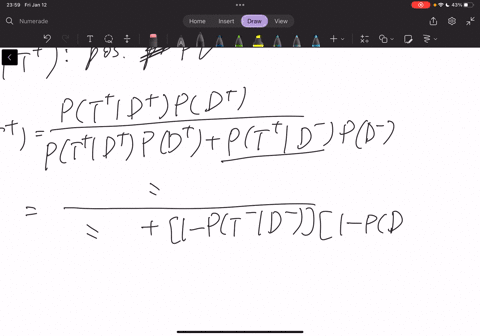 23:59 Fri Jan 12
43%
Numerade
Home Insert Draw Numerade
(T⁺): pos.
P(T⁺|D⁺)P(D⁺)
⁺) =
P(T⁺|D⁺) P(D⁺) + P(T⁺|D⁻) P(D⁻)
=
+ [1-P(T⁻|D⁻)] [1-P(D